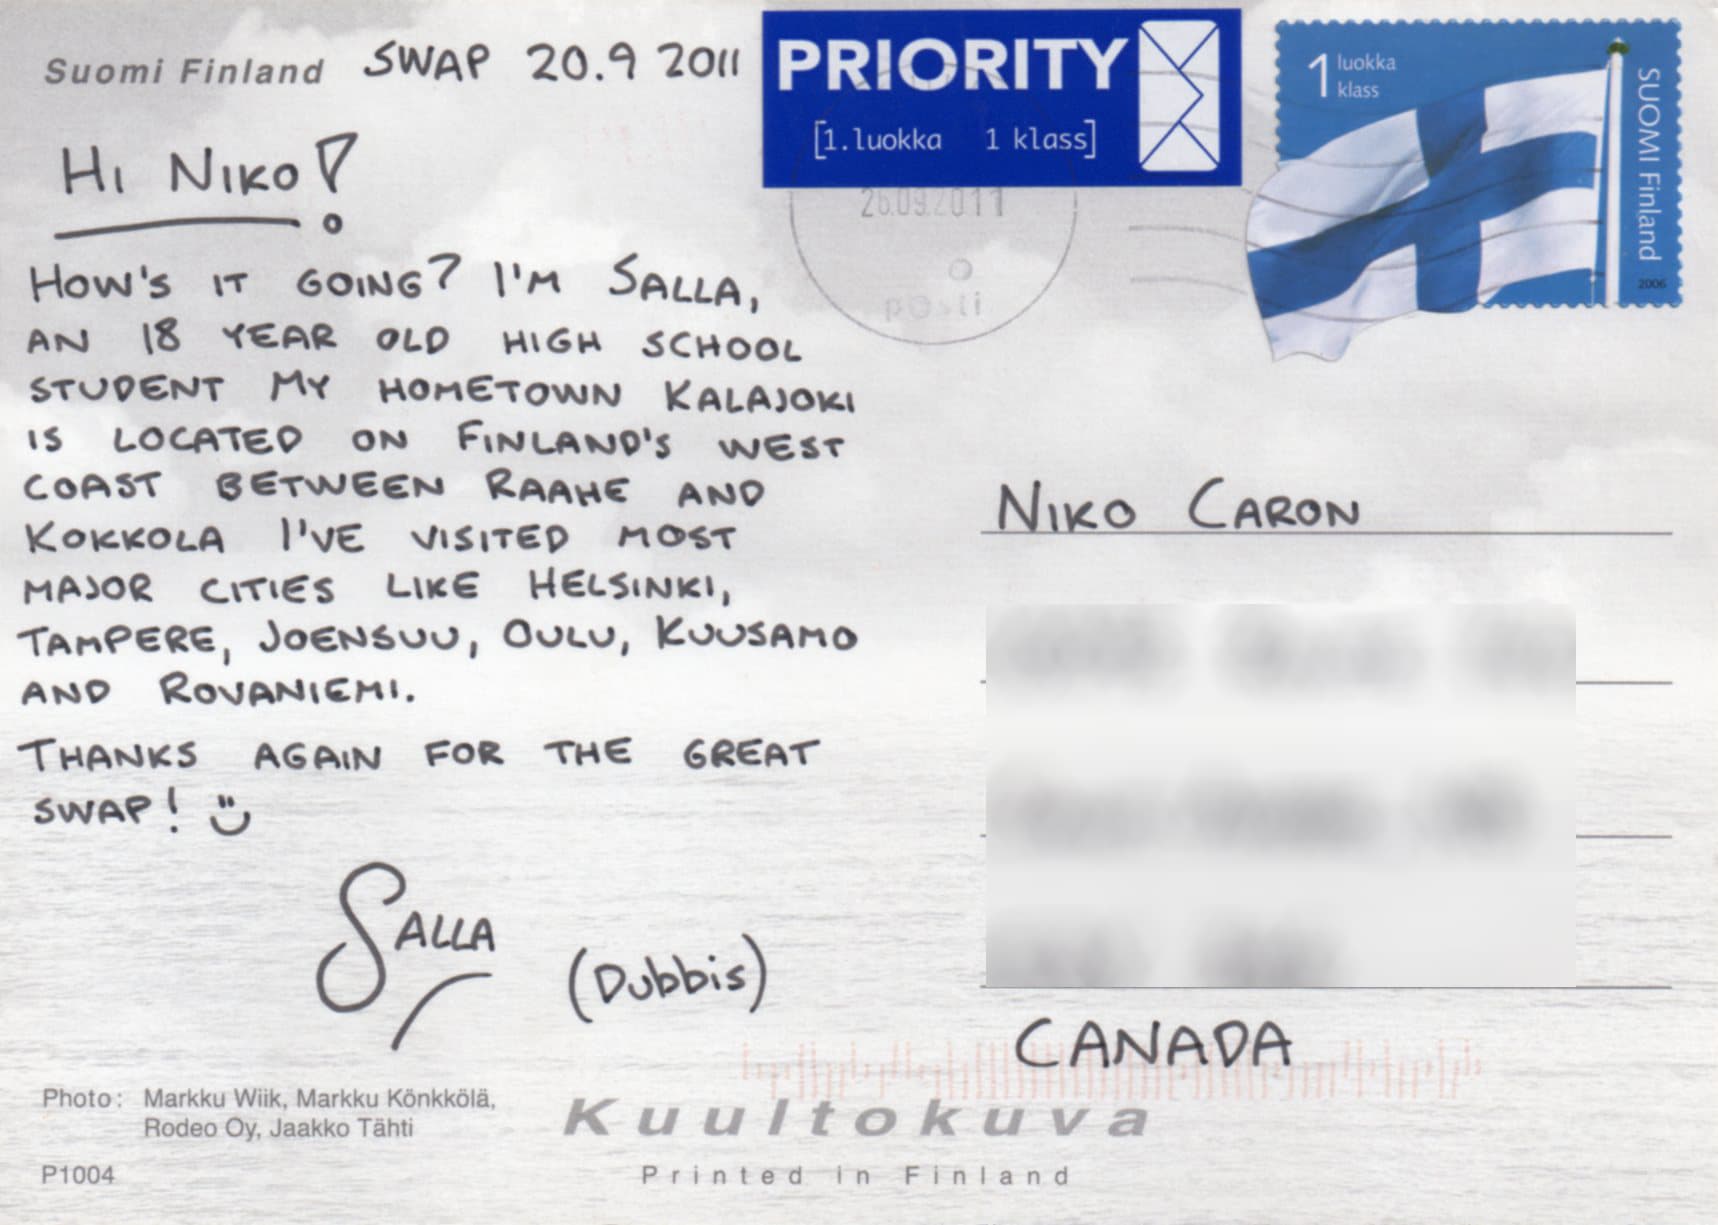 Suomi Finland SWAP 20.9 2011
PRIORITY
[1.luokka 1 klass]
1 luokka
klass
SUOMI Finland
2006
26.09.2011
posti
HI NIKO!
HOW'S IT GOING? I'M SALLA,
AN 18 YEAR OLD HIGH SCHOOL
STUDENT MY HOMETOWN KALAJOKI
IS LOCATED ON FINLAND'S WEST
COAST BETWEEN RAAHE AND
KOKKOLA I'VE VISITED MOST
MAJOR CITIES LIKE HELSINKI,
TAMPERE, JOENSUU, OULU, KUUSAMO
AND ROVANIEMI.
THANKS AGAIN FOR THE GREAT
SWAP! ツ
SALLA
(Dubbis)
NIKO CARON
CANADA
Photo: Markku Wiik, Markku Könkkölä,
Rodeo Oy, Jaakko Tähti
Kuultokuva
P1004
Printed in Finland